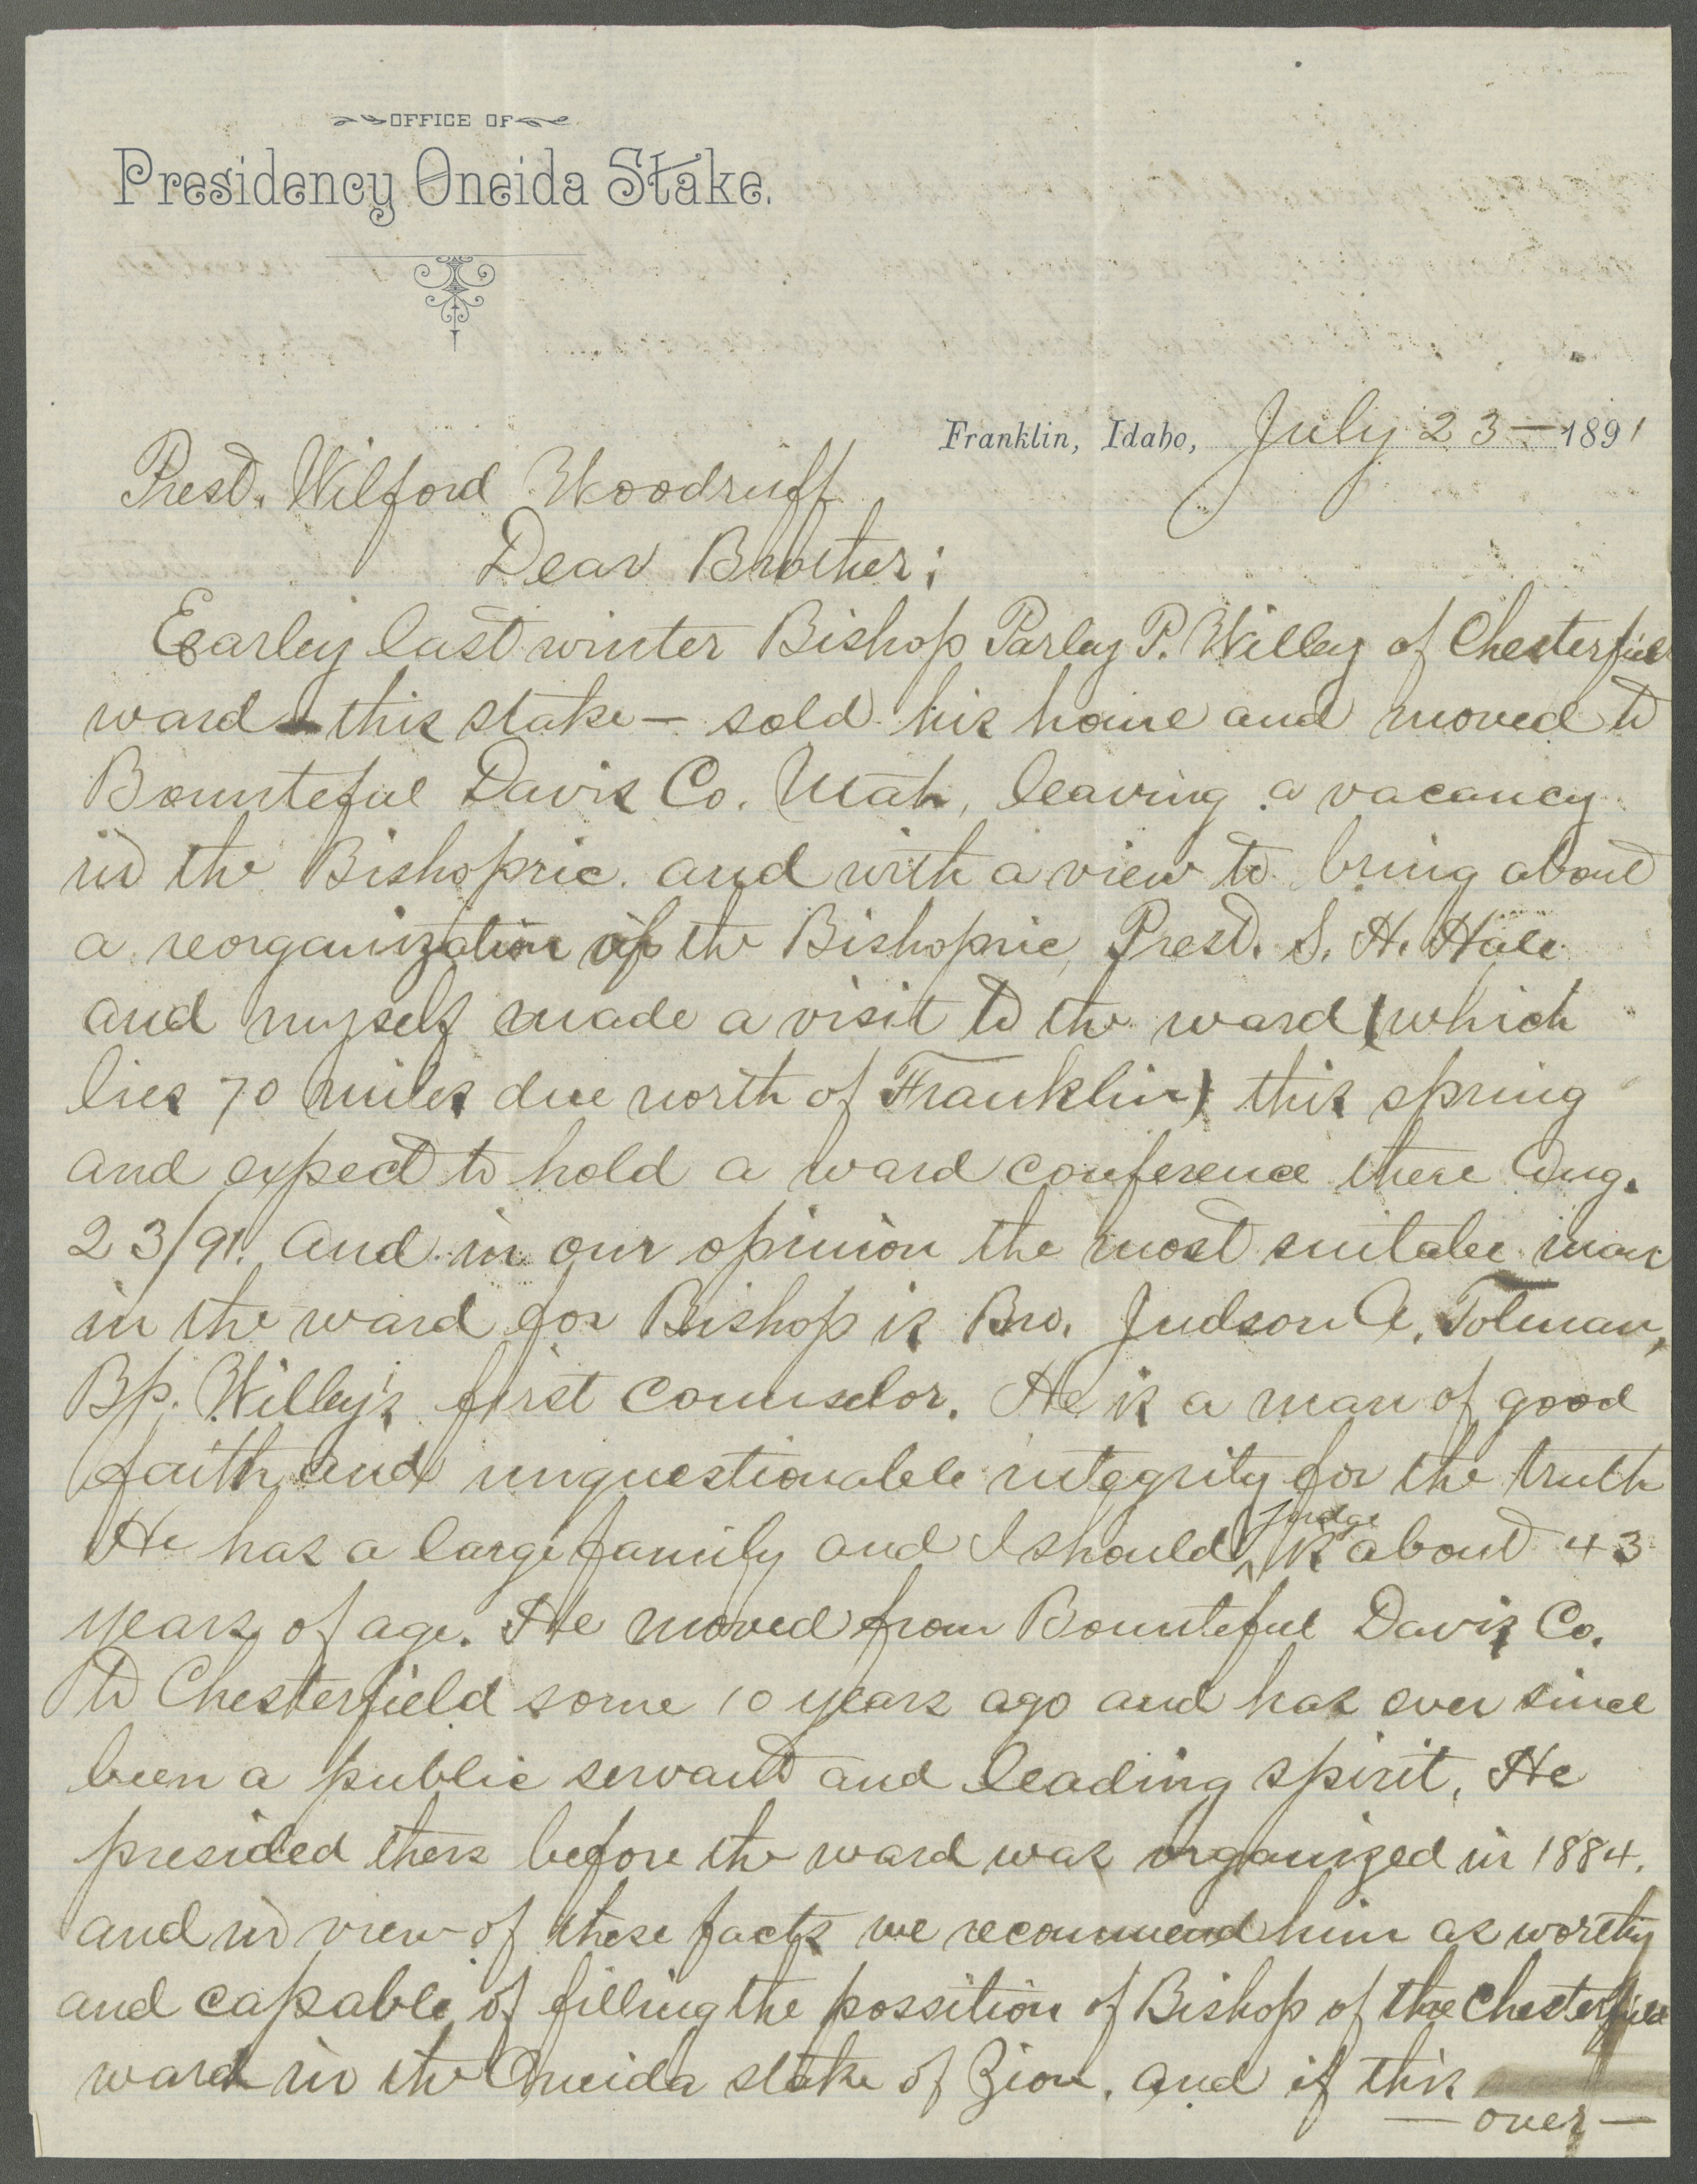 OFFICE OF
Presidency Oneida Stake.
Franklin, Idaho, July 23— 1891
Prest. Wilford Woodruff
Dear Brother;
Earley last winter Bishop Parley P. Willey of Chesterfield
ward — this stake — sold his home and moved to
Bounteful Davis Co. Utah, leaving a vacancy
in the Bishopric. and with a view to bring about
a reorganization of the Bishopric, Prest. S. H. Hale
and myself made a visit to the ward (which
lies 70 miles due north of Franklin) this spring
and expect to hold a ward conference there Aug.
23/91. and in our opinion the most suitable man
in the ward for Bishop is Bro. Judson A. Tolman,
Bp. Willey's first Counselor. He is a man of good
faith and unquestionable integrity for the truth
He has a large family and I should judge is about 43
years of age. He moved from Bounteful Davis Co.
to Chesterfield some 10 years ago and has ever since
been a public servant and leading spirit. He
presided there before the ward was organized in 1884.
and in view of these facts we recommend him as worthy
and capable of filling the possition of Bishop of the Chesterfield
ward in the Oneida stake of Zion. and if this
— over —